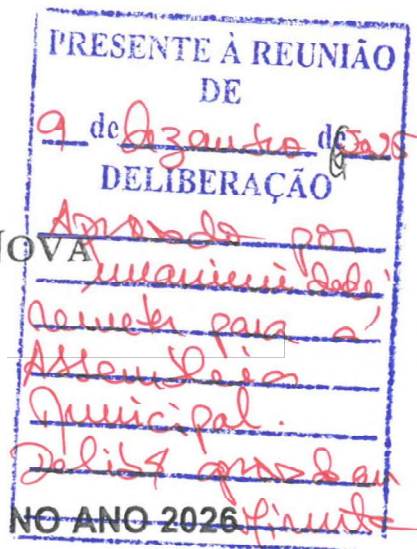 PRESENTE À REUNIÃO
DE
9 de dezembro de 2025
DELIBERAÇÃO
Aprovado por
NOVA
unanimidade
remeter para a
Assembleia
Municipal.
Delibº aprovada em
NO ANO 2026 minuta